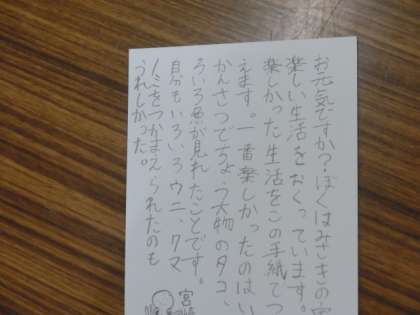 お元気ですか?ぼくはみさきの
楽しい生活をおくっています。
楽しかった生活をこの手紙でつ
えます。一番楽しかったのはい
かんさつです。大物のタコ、
ろいろ魚が見れたことです。
自分もいろいろウニ、クマ
ノミをつかまえられたのも
うれしかった。
宮